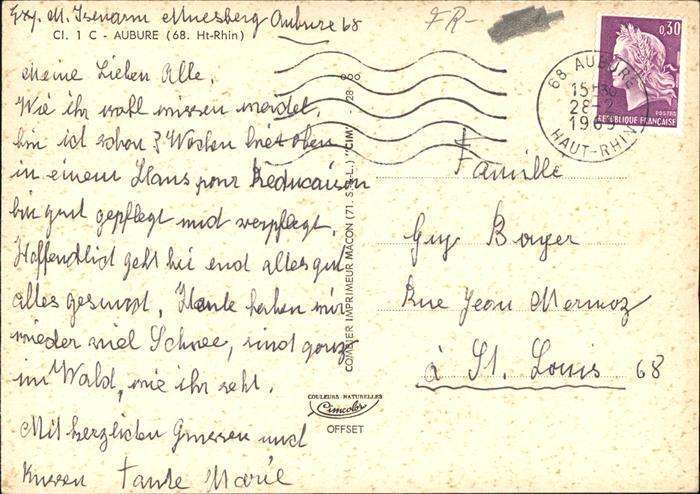 Exp. M. Isenarm Muesberg Aubure 68
FR-
Cl. 1 C - AUBURE (68. Ht-Rhin)
Meine Lieben Alle,
Wie ihr wohl wissen werdet,
bin ich schon 3 Wochen hier oben
in einem Haus pour Réducaison
bin gut gepflegt und verpflegt.
Hoffendlich geht bei end alles gut
alles gesund. Heute haben wir
wieder viel Schnee, sind ganz
im Wald, wie ihr seht.
Mit herzlichen Gruessen und
Kussen Tante Marie
COMBIER IMPRIMEUR MACON (71. S.-&-L.) "CIM"
COULEURS NATURELLES
Cimcolor
OFFSET
0,30
POSTES
REPUBLIQUE FRANÇAISE
68 AUBURE
28-2
HAUT-RHIN
Famille
Guy Boyer
Rue Jean Mermoz
à St. Louis 68